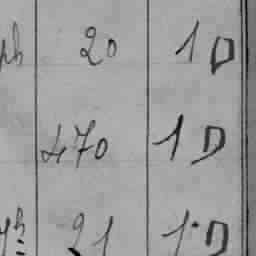 ph 20 1 D
470 1 D
yh 21 1 D